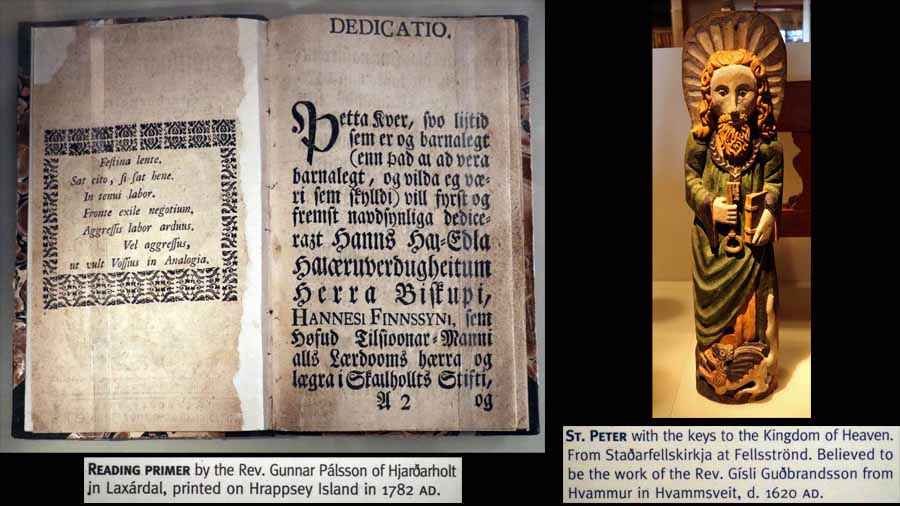 Festina lente.
Sat cito, si sat bene.
In tenui labor.
Fronte exile negotium,
Aggressus labor arduus.
Vel aggressus,
ut vult Vossius in Analogia.
DEDICATIO.
Þetta Kver, svo lijtid
sem er og barnalegt
(enn þad a ad vera
barnalegt, og vilda eg væ-
ri sem skylldi) vill fyrst og
fremst naudsynliga dedice-
razt Hanns Háy-Edla
Haíæruverdugheitum
Herra Biskupi,
HANNESI FINNSSYNI, sem
Høfud Tilsioonar-Manni
alls Lærdooms hærra og
lægra i Skaalhollts Stifti,
A 2 og
READING PRIMER by the Rev. Gunnar Pálsson of Hjarðarholt
in Laxárdal, printed on Hrappsey Island in 1782 AD.
ST. PETER with the keys to the Kingdom of Heaven.
From Staðarfellskirkja at Fellsströnd. Believed to
be the work of the Rev. Gísli Guðbrandsson from
Hvammur in Hvammsveit, d. 1620 AD.